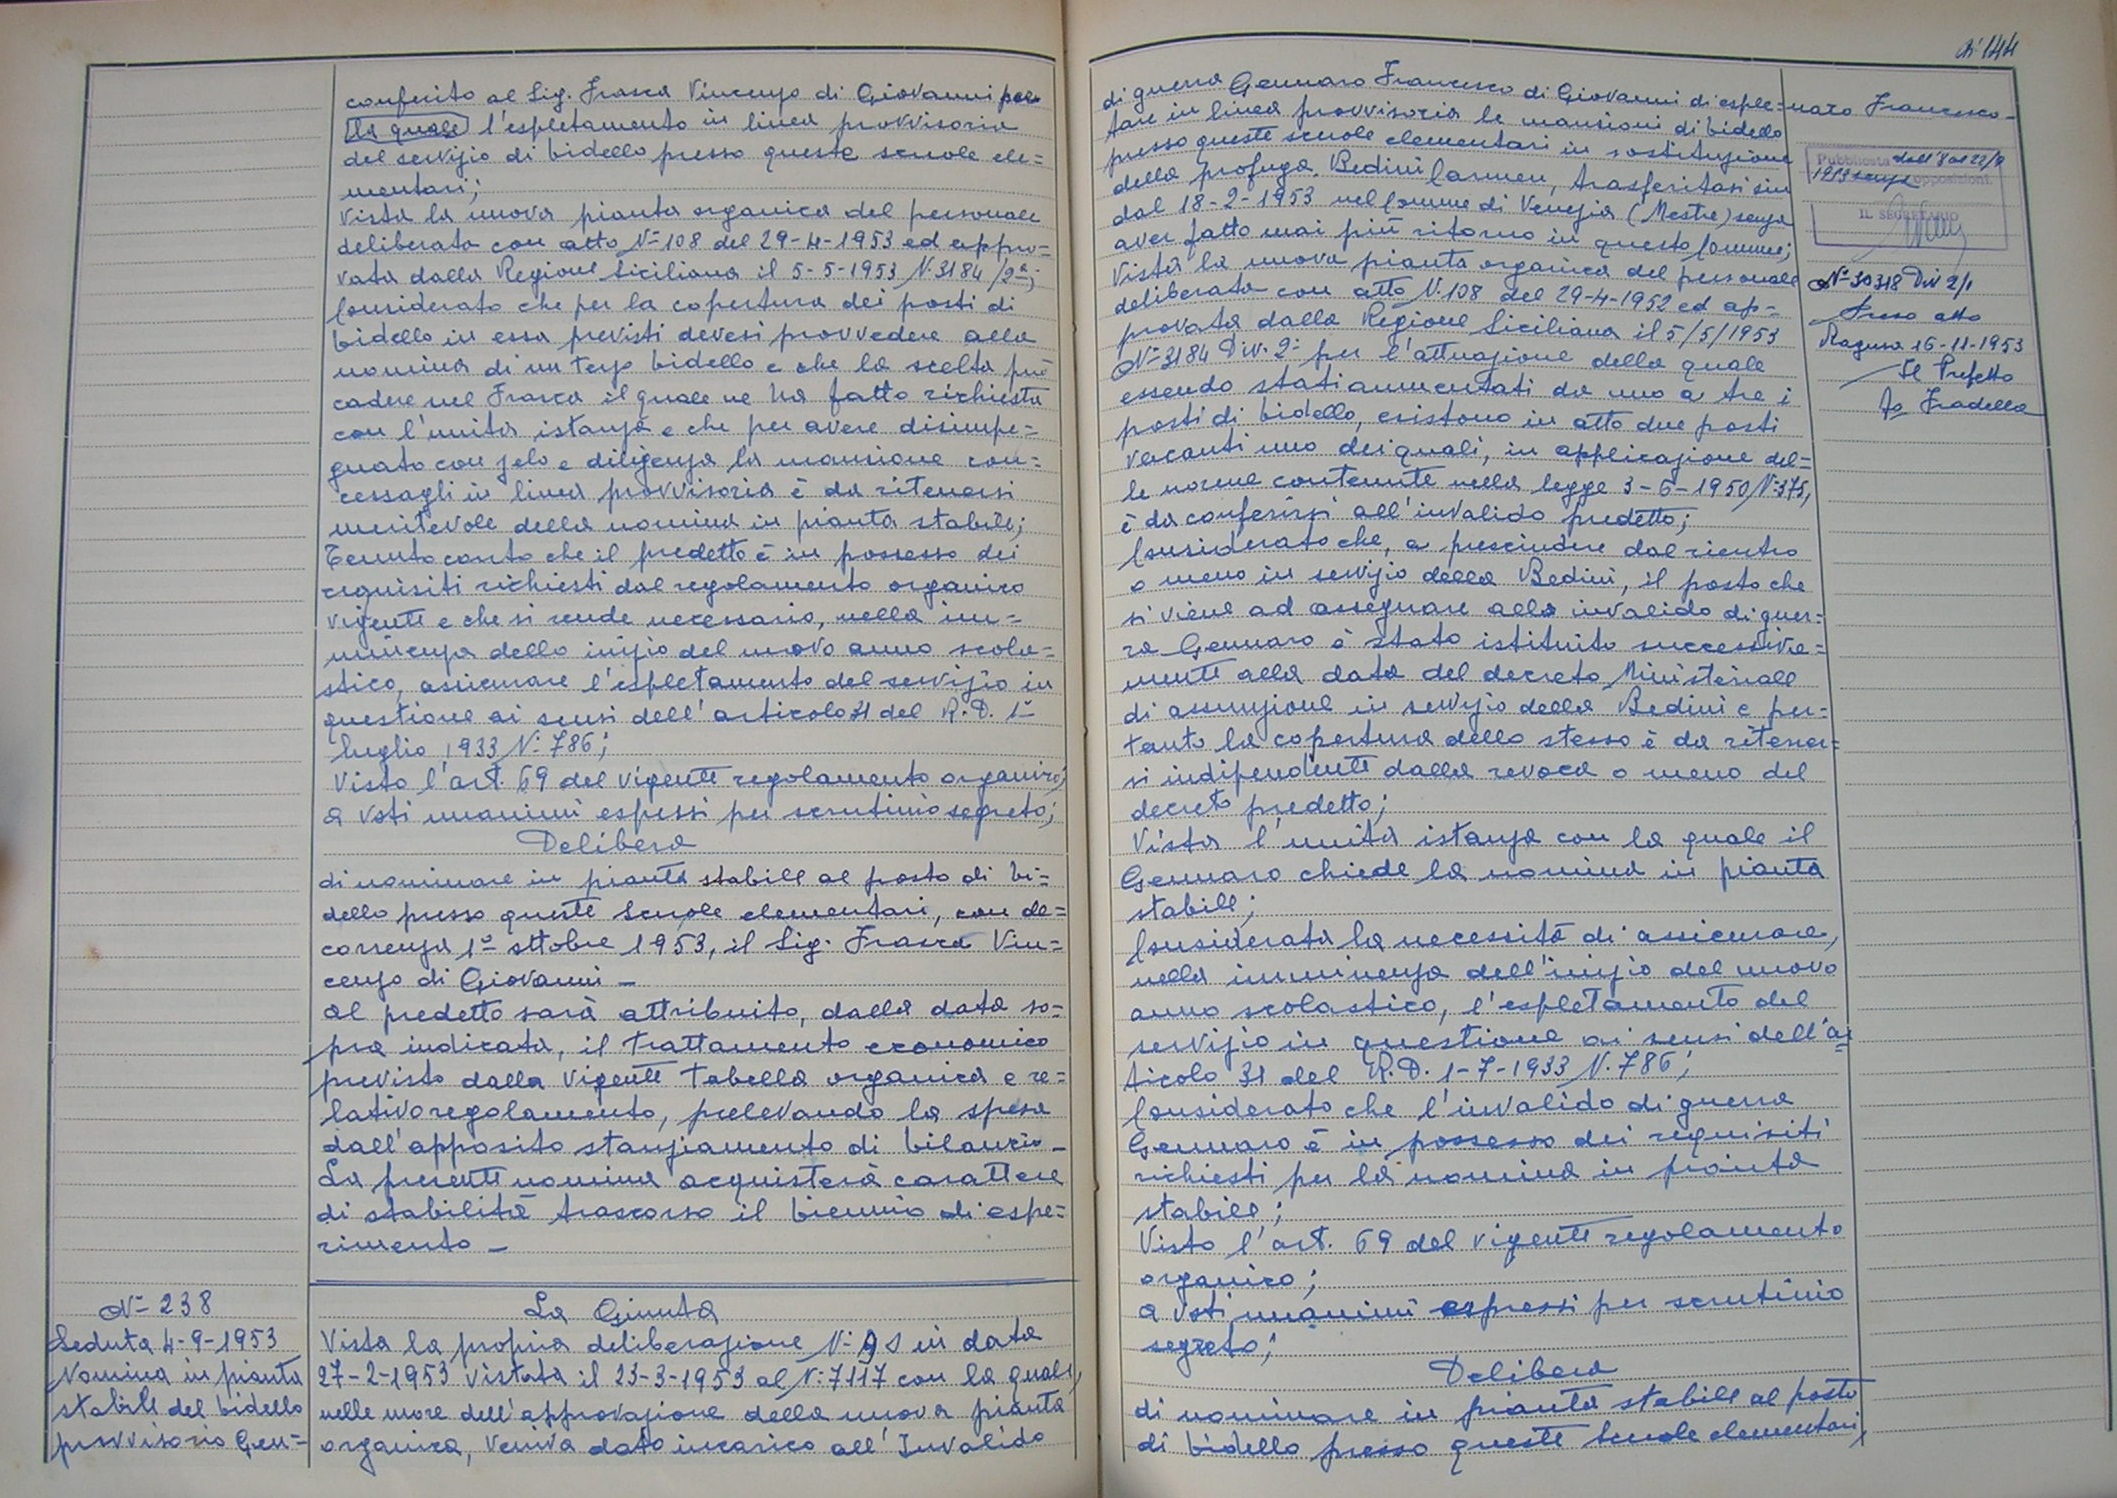 conferito al Sig. Frasca Vincenzo di Giovanni per
la quale l'espletamento in linea provvisoria
del servizio di bidello presso queste scuole ele=
mentari;
Vista la nuova pianta organica del personale
deliberata con atto N° 108 del 29-4-1953 ed appro=
vata dalla Regione Siciliana il 5-5-1953 N. 3184/2ª;
Considerato che per la copertura dei posti di
bidello in essa previsti devesi provvedere alla
nomina di un terzo bidello e che la scelta può
cadere nel Frasca il quale ne ha fatto richiesta
con l'unita istanza e che per avere disimpe=
gnato con zelo e diligenza la mansione con=
cessagli in linea provvisoria è da ritenersi
meritevole della nomina in pianta stabile;
Tenuto conto che il predetto è in possesso dei
requisiti richiesti dal regolamento organico
vigente e che si rende necessario, nella im=
minenza dello inizio del nuovo anno scola=
stico, assicurare l'espletamento del servizio in
questione ai sensi dell'articolo 31 del R.D. 1°
luglio 1933 N. 786;
Visto l'art. 69 del vigente regolamento organico;
a voti unanimi espressi per scrutinio segreto;
Delibera
di nominare in pianta stabile al posto di bi=
dello presso queste Scuole elementari, con de=
correnza 1° ottobre 1953, il Sig. Frasca Vin=
cenzo di Giovanni -
al predetto sarà attribuito, dalla data so=
pra indicata, il trattamento economico
previsto dalla vigente tabella organica e re=
lativo regolamento, prelevando la spesa
dall'apposito stanziamento di bilancio -
La presente nomina acquisterà carattere
di stabilità trascorso il biennio di espe=
rimento -
N° 238
Seduta 4-9-1953
Nomina in pianta
stabile del bidello
provvisorio Gen=
La Giunta
Vista la propria deliberazione N. 91 in data
27-2-1953 vistata il 23-3-1953 al N. 7117 con la quale,
nelle more dell'approvazione della nuova pianta
organica, veniva dato incarico all'Invalido
144
di guerra Gennaro Francesco di Giovanni di esple=
tare in linea provvisoria le mansioni di bidello
presso queste scuole elementari in sostituzione
della profuga Bedini Carmen, trasferitasi sin
dal 18-2-1953 nel Comune di Venezia (Mestre) senza
aver fatto mai più ritorno in questo Comune;
Vista la nuova pianta organica del personale
deliberata con atto N. 108 del 29-4-1952 ed ap=
provata dalla Regione Siciliana il 5/5/1953
N° 3184 Div. 2ª per l'attuazione della quale
essendo stati aumentati da uno a tre i
posti di bidello, esistono in atto due posti
vacanti uno dei quali, in applicazione del=
le norme contenute nella legge 3-6-1950 N. 375,
è da conferirsi all'invalido predetto;
Considerato che, a prescindere dal rientro
o meno in servizio della Bedini, il posto che
si viene ad assegnare allo invalido di guer=
ra Gennaro è stato istituito successiva=
mente alla data del decreto Ministeriale
di assunzione in servizio della Bedini e per=
tanto la copertura dello stesso è da ritener=
si indipendente dalla revoca o meno del
decreto predetto;
Vista l'unita istanza con la quale il
Gennaro chiede la nomina in pianta
stabile;
Considerata la necessità di assicurare,
nella imminenza dell'inizio del nuovo
anno scolastico, l'espletamento del
servizio in questione ai sensi dell'ar=
ticolo 31 del R.D. 1-7-1933 N. 786;
Considerato che l'invalido di guerra
Gennaro è in possesso dei requisiti
richiesti per la nomina in pianta
stabile;
Visto l'art. 69 del vigente regolamento
organico;
a voti unanimi espressi per scrutinio
segreto;
Delibera
di nominare in pianta stabile al posto
di bidello presso queste Scuole elementari,
naro Francesco -
Pubblicata dall'8 al 22/9
1953 senza opposizioni
IL SEGRETARIO
N° 30318 Div 2/1
Preso atto
Ragusa 16-11-1953
Il Prefetto
fo Fradella